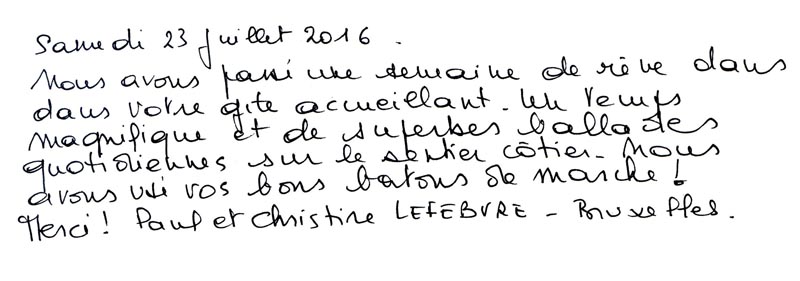 Samedi 23 Juillet 2016.
Nous avons passé une semaine de rêve dans
dans votre gite accueillant. Un temps
magnifique et de superbes ballades
quotidiennes sur le sentier côtier. Nous
avons usé vos bons batons de marche!
Merci! Paul et Christine LEFEBVRE - Bruxelles.